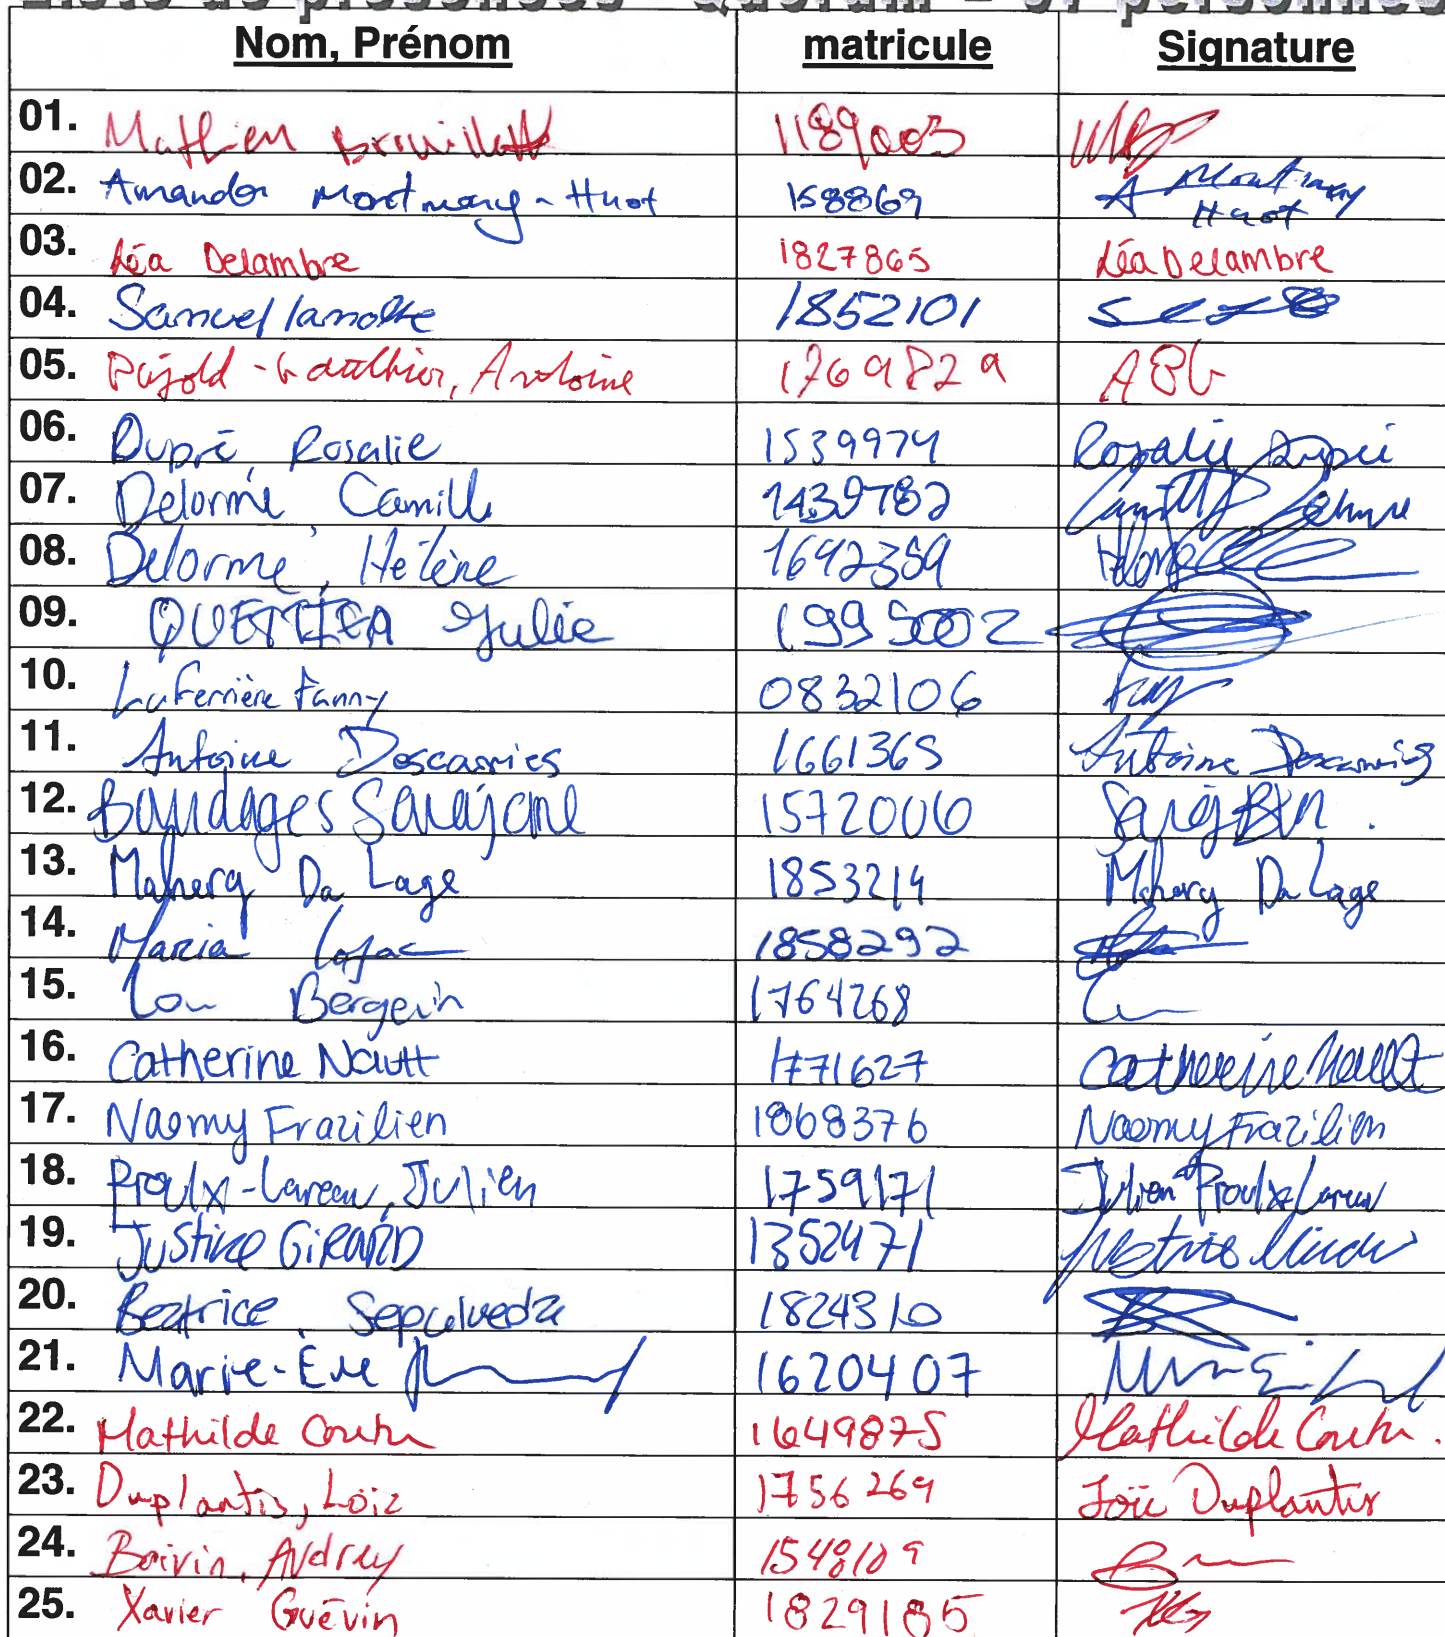 Liste de présences - Quorum = 57 personnes
Nom, Prénom matricule Signature
01. Mathieu Brouillette 1189003
02. Amanda Montmany-Huot 158869 A Montmany
Huot
03. Léa Delambre 1827865 Léa Delambre
04. Samuel Lamothe 1852101
05. Pigold-Gauthier, Antoine 1769829 APG
06. Dupré, Rosalie 1539974 Rosalie Dupré
07. Delorme, Camille 1439782 Camille Delorme
08. Delorme, Hélène 1692359
09. Julie 1995002
10. Laferrière Fanny 0832106
11. Antoine Descarries 1661365 Antoine Descarries
12. Sarajane 1572006
13. Mahery Da Lage 1853214 Mahery Da Lage
14. Maria 1858292
15. Lou Bergevin 1764268
16. Catherine Nault 1771627 Catherine Nault
17. Naomy Frazilien 1868376 Naomy Frazilien
18. Proulx-Lareau, Julien 1759171 Julien Proulx Lareau
19. Justine GIRARD 1352471
20. Beatrice, Sepulveda 1824310
21. Marie-Eve 1620407
22. Mathilde Coutu 1649875 Mathilde Coutu.
23. Duplantis, Loïc 1756269 Loïc Duplantis
24. Boivin, Audrey 1548109
25. Xavier Guévin 1829185